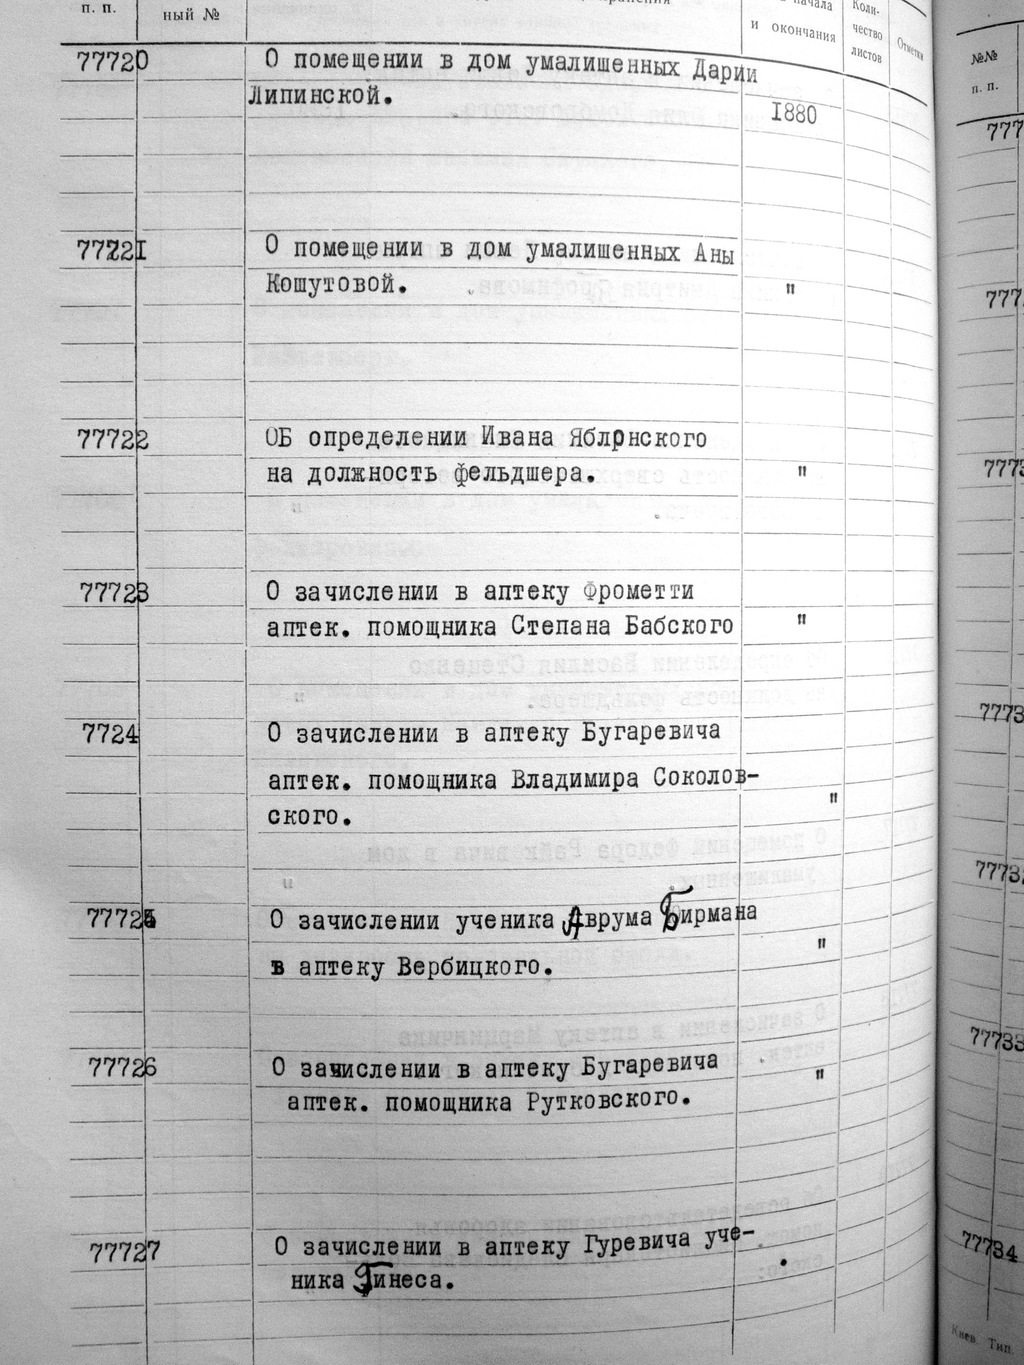 п. п.
ный №
начала
и окончания
Коли-
чество
листов
Отметки
77720 О помещении в дом умалишенных Дарии
Липинской.
1880
77721 О помещении в дом умалишенных Аны
Кошутовой. "
77722 ОБ определении Ивана Яблонского
на должность фельдшера. "
77723 О зачислении в аптеку Фрометти
аптек. помощника Степана Бабского "
7724 О зачислении в аптеку Бугаревича
аптек. помощника Владимира Соколов-
ского. "
77725 О зачислении ученика Аврума Бирмана
в аптеку Вербицкого. "
77726 О зачислении в аптеку Бугаревича
аптек. помощника Рутковского. "
77727 О зачислении в аптеку Гуревича уче-
ника Гинеса.
№№
п. п.
777
777
7773
7773
7773
77733
77734
Киев Тип.